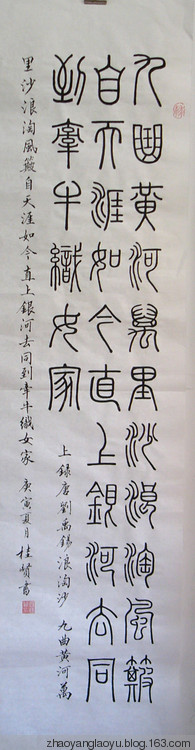 九曲黄河萬里沙浪淘風簸
自天涯如今直上銀河去同
到牽牛織女家
上錄唐劉禹錫浪淘沙 九曲黄河萬
里沙浪淘風簸自天涯如今直上銀河去同到牽牛織女家 庚寅夏月 桂賢書
zhaoyanglaoyu.blog.163.com